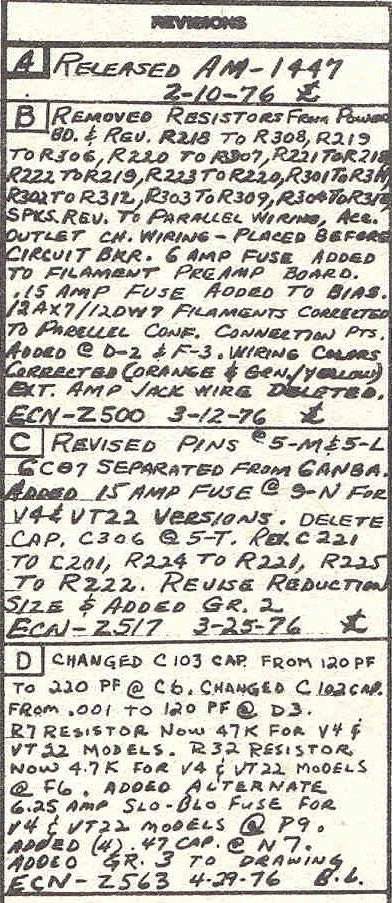 REVISIONS
A RELEASED AM-1447
2-10-76
B REMOVED RESISTORS FROM POWER
BD. & REV. R218 TO R308, R219
TO R306, R220 TO R307, R221 TO R218
R222 TO R219, R223 TO R220, R301 TO R311
R302 TO R312, R303 TO R309, R304 TO R310
SPKS. REV. TO PARALLEL WIRING, ACC.
OUTLET CH. WIRING - PLACED BEFORE
CIRCUIT BKR. 6 AMP FUSE ADDED
TO FILAMENT PREAMP BOARD.
.15 AMP FUSE ADDED TO BIAS.
12AX7/12DW7 FILAMENTS CORRECTED
TO PARELLEL CONF. CONNECTION PTS.
ADDED @ D-2 & F-3. WIRING COLORS
CORRECTED (ORANGE & GRN./YELLOW)
EXT. AMP JACK WIRE DELETED.
ECN-Z500 3-12-76
C REVISED PINS @ 5-M & 5-L
6C07 SEPARATED FROM 6ANBA.
ADDED 15 AMP FUSE @ 9-N FOR
V4 & VT22 VERSIONS. DELETE
CAP. C306 @ 5-T. REV. C221
TO C201, R224 TO R221, R225
TO R222. REVISE REDUCTION
SIZE & ADDED GR. 2
ECN-Z517 3-25-76
D CHANGED C103 CAP. FROM 120 PF
TO 220 PF @ C6. CHANGED C102 CAP.
FROM .001 TO 120 PF @ D3.
R7 RESISTOR NOW 47K FOR V4 &
VT22 MODELS. R32 RESISTOR
NOW 4.7K FOR V4 & VT22 MODELS
@ F6. ADDED ALTERNATE
6.25 AMP SLO-BLO FUSE FOR
V4 & VT22 MODELS @ P9.
ADDED (4) .47 CAP. @ N7.
ADDED GR. 3 TO DRAWING
ECN-Z563 4-29-76 B.L.